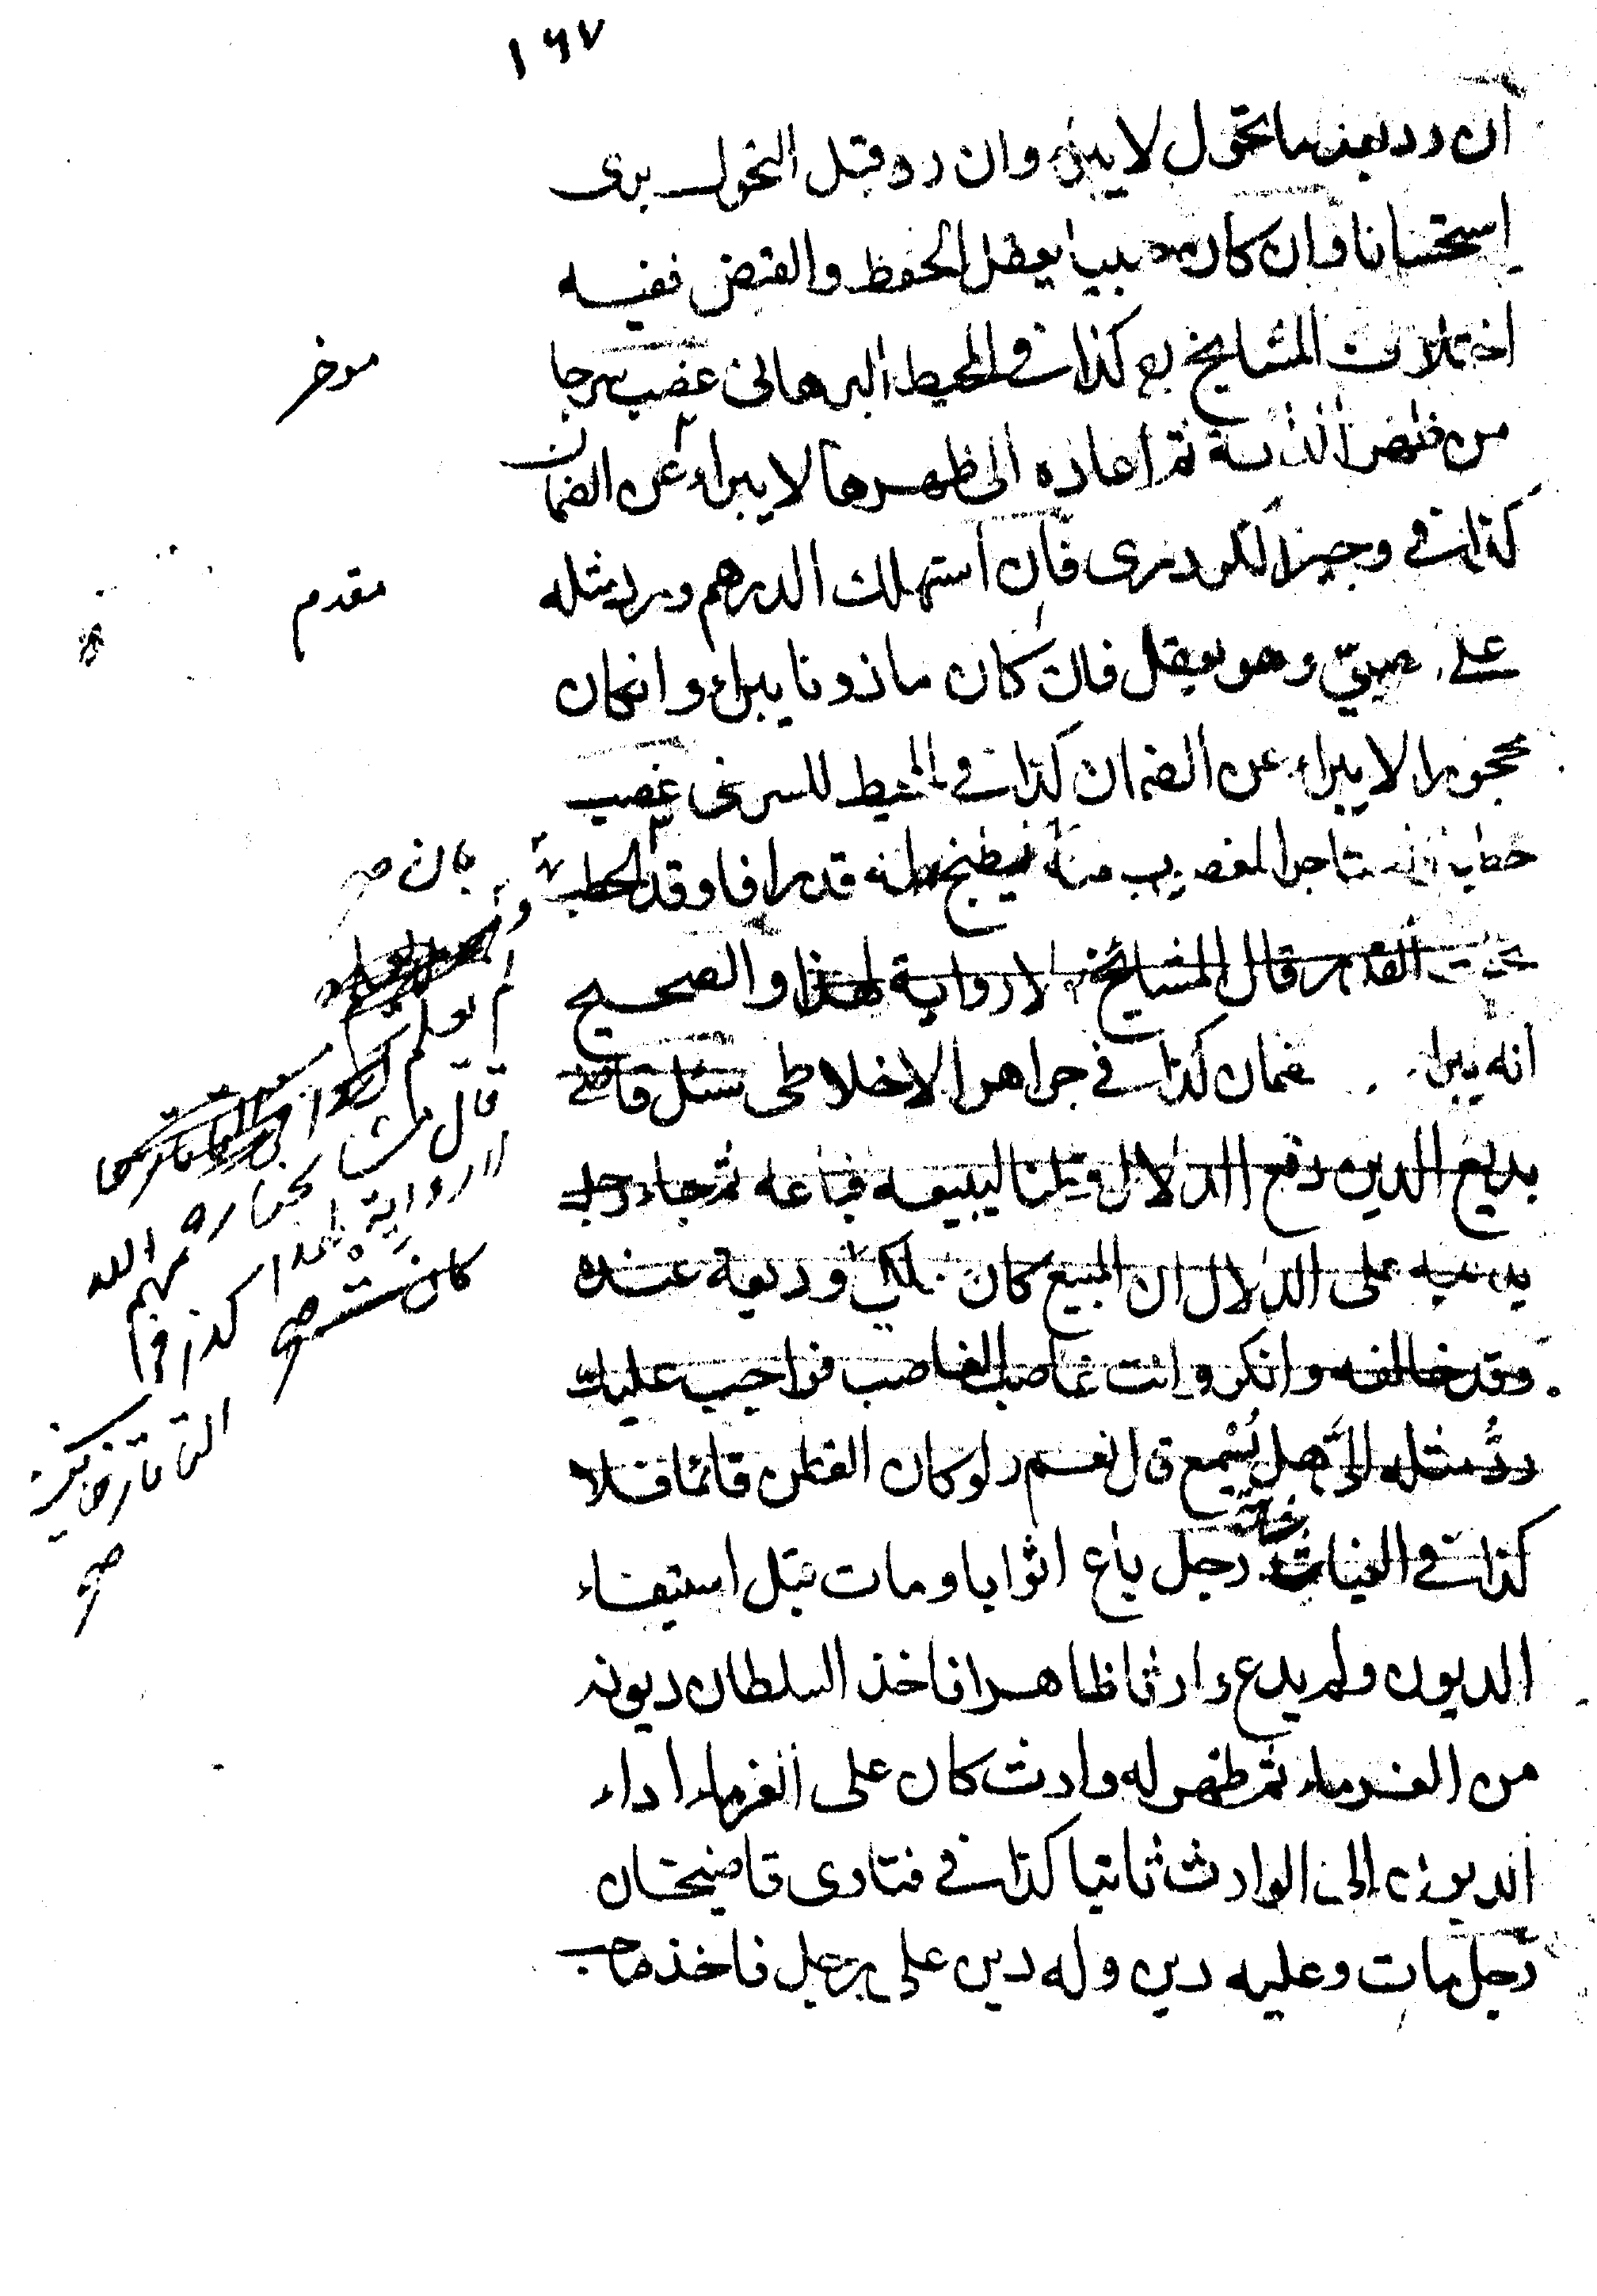 ١٦٧
ان رد بعد ما تحول لا يبرئ وان رد قبل التحول برى
استحسانا وان كان صبيا يعقل الحفظ والقبض ففيه
اختلاف المشايخ كذا في المحيط البرهاني غصب سرجا
من ظهر الدابة ثم اعاده الى ظهرها لا يبراء عن الضمان
كذا في وجيز الكردرى فان استهلك الدرهم ورد مثله
على صبيّ وهو يعقل فان كان ماذونا يبراء وان كان
محجورا لا يبراء عن الضمان كذا في المحيط للسرخسى غصب
حطبا فاستاجر المغصوب منه ليطبخ له قدرا فاوقد الحطب
تحت القدر قال المشايخ لا رواية لهذا والصحيح
انه يبرا ضمان كذا في جواهر الاخلاطى سئل قاضى
بديع الدين دفع الدلال ليبيعه فباعه ثم جاء رجل
يدعيه على الدلال ان المبيع كان ملكي وديعة عنده
وقد خالفه وانكر وانت غاصب الغاصب فواجب عليك
ردُّ مثله اليَّ هل يُسْمع قال نعم ولو كان قائما فلا
كذا في رجل باع اثوابا ومات قبل استيفاء
الديون ولم يدع وارثا ظاهرا فاخذ السلطان ديونه
من الغرماء ثم ظهر له وارث كان على الغرماء اداء
الديون الى الوارث ثانيا كذا في فتاوى قاضيخان
رجل مات وعليه دين وله دين على رجل فاخذ صاحب
موخر
مقدم
بان صح
لم يعلم
قال مشايخنا رحمهم الله
لا رواية لهذا كذا في
التاتارخانية
صح